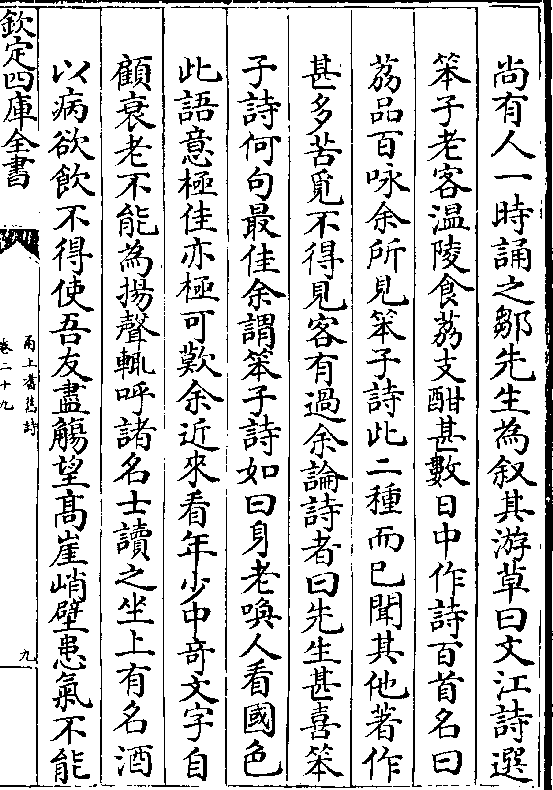 尚有人一時誦之鄒先生為叙其游草曰文江詩選
笨子老客溫陵食荔支酣甚數日中作詩百首名曰
荔品百咏余所見笨子詩此二種而已聞其他著作
甚多苦覓不得見客有過余論詩者曰先生甚喜笨
子詩何句最佳余謂笨子詩如曰身老喚人看國色
此語意極佳亦極可歎余近來看年少中奇文字自
顧衰老不能為揚聲輒呼諸名士讀之坐上有名酒
以病欲飲不得使吾友盡觴望髙崖峭壁患氣不能
欽定四庫全書
甬上耆舊詩
卷二十九
九